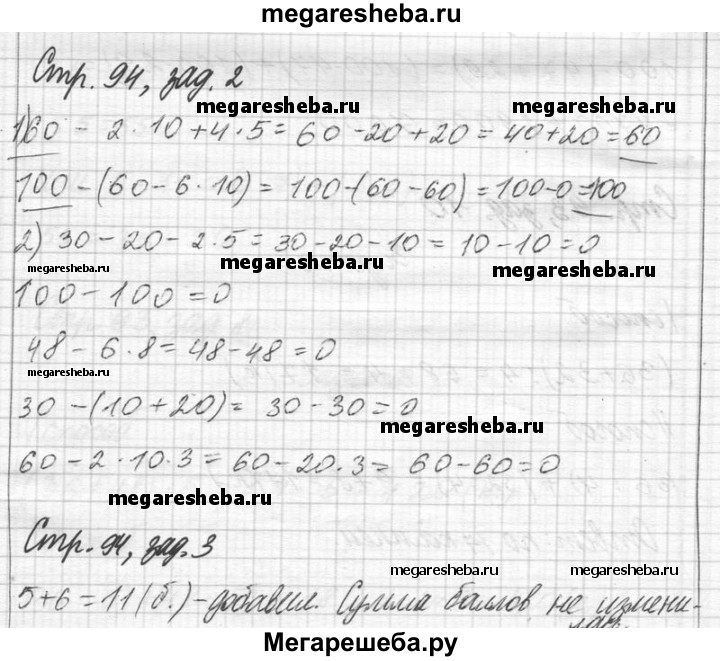 megaresheba.ru
Стр. 94, зад. 2
megaresheba.ru
megaresheba.ru
1) 60 - 2 · 10 + 4 · 5 = 60 - 20 + 20 = 40 + 20 = 60
100 - (60 - 6 · 10) = 100 - (60 - 60) = 100 - 0 = 100
2) 30 - 20 - 2 · 5 = 30 - 20 - 10 = 10 - 10 = 0
megaresheba.ru
megaresheba.ru
megaresheba.ru
100 - 100 = 0
48 - 6 · 8 = 48 - 48 = 0
megaresheba.ru
30 - (10 + 20) = 30 - 30 = 0
megaresheba.ru
60 - 2 · 10 · 3 = 60 - 20 · 3 = 60 - 60 = 0
megaresheba.ru
Стр. 94, зад. 3
megaresheba.ru
5 + 6 = 11 (б.) - добавил. Сумма баллов не измени-
лась
Мегарешеба.ру